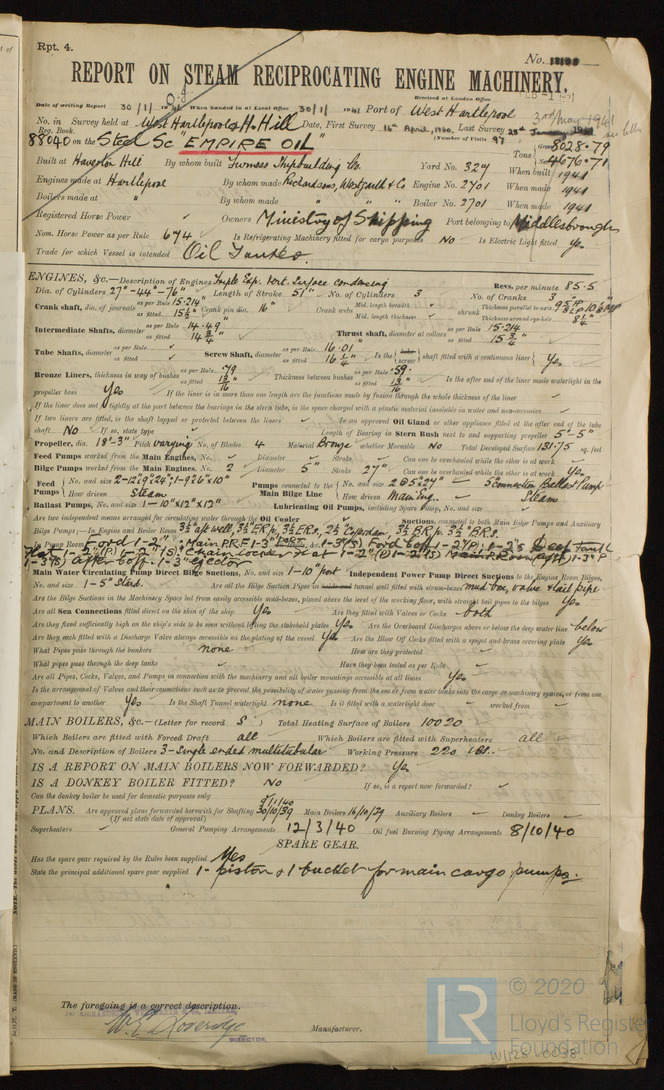 Rpt. 4.
No. 18100
REPORT ON STEAM RECIPROCATING ENGINE MACHINERY.
Received at London Office
Date of writing Report 30/1/1941 When handed in at Local Office 30/1/1941 Port of West Hartlepool
No. in Survey held at West Hartlepool & H. Hill Date, First Survey 16th April, 1940 Last Survey 28th January 1941
Reg. Book. (Number of Visits 97)
88040 on the Steel Sc "EMPIRE OIL" Tons Gross 8028.79
Net 4676.71
Built at Haverton Hill By whom built Furness Shipbuilding Co. Yard No. 327 When built 1941
Engines made at Hartlepool By whom made Richardsons, Westgarth & Co Engine No. 2701 When made 1941
Boilers made at " By whom made " Boiler No. 2701 When made 1941
Registered Horse Power Owners Ministry of Shipping Port belonging to Middlesbrough
Nom. Horse Power as per Rule 674 Is Refrigerating Machinery fitted for cargo purposes No Is Electric Light fitted Yes
Trade for which Vessel is intended Oil Tanker.
ENGINES, &c.—Description of Engines Triple Exp. Vert. Surface condensing Revs. per minute 85.5
Dia. of Cylinders 27"-44"-76" Length of Stroke 51" No. of Cylinders 3 No. of Cranks 3
Crank shaft, dia. of journals as per Rule 15.214" as fitted 15½" Crank pin dia. 16" Crank webs Mid. length breadth Mid. length thickness shrunk Thickness parallel to axis Thickness around eye-hole
Intermediate Shafts, diameter as per Rule 14.49 as fitted 14¾" Thrust shaft, diameter at collars as per Rule 15.214 as fitted 15¾"
Tube Shafts, diameter as per Rule as fitted Screw Shaft, diameter as per Rule 16.01 as fitted 16¼" Is the tube screw shaft fitted with a continuous liner Yes
Bronze Liners, thickness in way of bushes as per Rule .79 as fitted 13/16" Thickness between bushes as per Rule .59 as fitted 13/16" Is the after end of the liner made watertight in the
propeller boss Yes If the liner is in more than one length are the junctions made by fusion through the whole thickness of the liner
If the liner does not fit tightly at the part between the bearings in the stern tube, is the space charged with a plastic material insoluble in water and non-corrosive
If two liners are fitted, is the shaft lapped or protected between the liners Is an approved Oil Gland or other appliance fitted at the after end of the tube
shaft No If so, state type Length of Bearing in Stern Bush next to and supporting propeller 5'-5"
Propeller, dia. 18'-3" Pitch varying No. of Blades 4 Material Bronze whether Moveable No Total Developed Surface 131.75 sq. feet
Feed Pumps worked from the Main Engines, No. Diameter Stroke Can one be overhauled while the other is at work
Bilge Pumps worked from the Main Engines, No. 2 Diameter 5" Stroke 27" Can one be overhauled while the other is at work Yes
Feed Pumps No. and size How driven Steam Pumps connected to the Main Bilge Line No. and size 2 @ 5"x27" How driven Main Eng. Steam
Ballast Pumps, No. and size 1-10"x12"x12" Lubricating Oil Pumps, including Spare Pump, No. and size
Are two independent means arranged for circulating water through the Oil Cooler Suctions, connected to both Main Bilge Pumps and Auxiliary
Bilge Pumps;—In Engine and Boiler Room
Main Water Circulating Pump Direct Bilge Suctions, No. and size 1-10" port Independent Power Pump Direct Suctions to the Engine Room Bilges,
No. and size 1-5" Stbd. Are all the Bilge Suction Pipes in tunnel well fitted with strum-boxes mud box, valve & tail pipe
Are the Bilge Suctions in the Machinery Space led from easily accessible mud-boxes, placed above the level of the working floor, with straight tail pipes to the bilges Yes
Are all Sea Connections fitted direct on the skin of the ship Yes Are they fitted with Valves or Cocks both
Are they fixed sufficiently high on the ship's side to be seen without lifting the stokehold plates Yes Are the Overboard Discharges above or below the deep water line below
Are they each fitted with a Discharge Valve always accessible on the plating of the vessel Yes Are the Blow Off Cocks fitted with a spigot and brass covering plate Yes
What Pipes pass through the bunkers none How are they protected
What pipes pass through the deep tanks Have they been tested as per Rule
Are all Pipes, Cocks, Valves, and Pumps in connection with the machinery and all boiler mountings accessible at all times Yes
Is the arrangement of Valves and their connections such as to prevent the possibility of water passing from the sea or from water tanks into the cargo or machinery spaces, or from one
compartment to another Yes Is the Shaft Tunnel watertight none Is it fitted with a watertight door worked from
MAIN BOILERS, &c.—(Letter for record S) Total Heating Surface of Boilers 10020
Which Boilers are fitted with Forced Draft all Which Boilers are fitted with Superheaters all
No. and Description of Boilers 3-Single ended multitubular Working Pressure 220 lbs.
IS A REPORT ON MAIN BOILERS NOW FORWARDED? Yes
IS A DONKEY BOILER FITTED? No If so, is a report now forwarded?
Can the donkey boiler be used for domestic purposes only
PLANS. Are approved plans forwarded herewith for Shafting 30/10/39 Main Boilers 16/10/39 Auxiliary Boilers Donkey Boilers
(If not state date of approval)
Superheaters General Pumping Arrangements 12/3/40 Oil fuel Burning Piping Arrangements 8/10/40
SPARE GEAR.
Has the spare gear required by the Rules been supplied Yes
State the principal additional spare gear supplied 1- piston & 1 bucket for main cargo pumps.
The foregoing is a correct description.
DIRECTOR
Manufacturer.
© 2020
Lloyd's Register
Foundation
W1128-0038